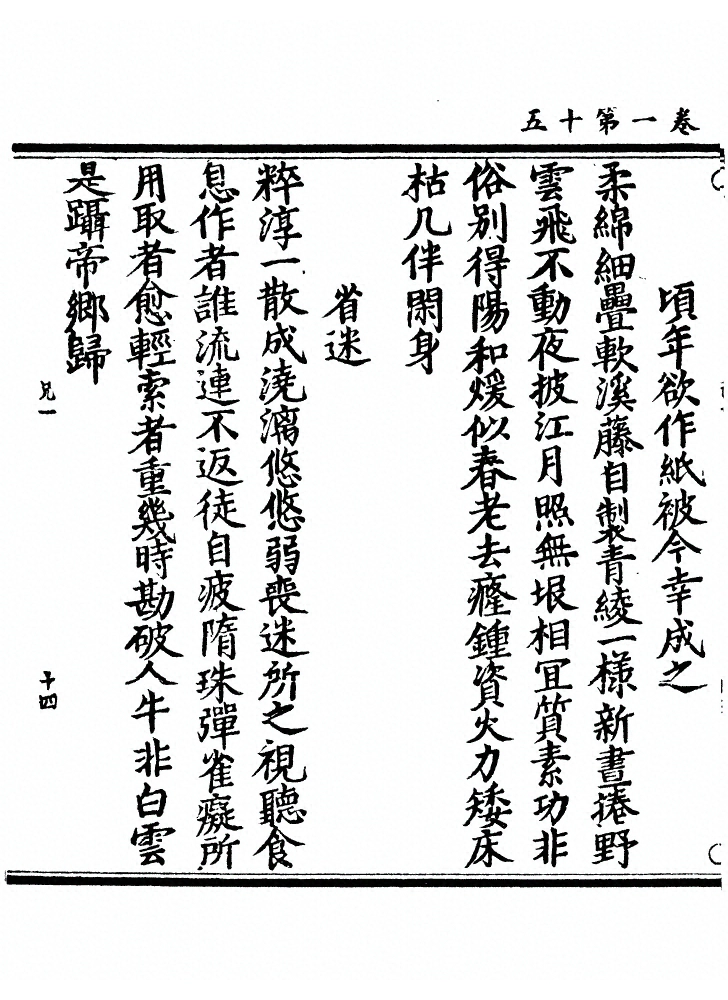 卷一第十五
頃年欲作紙被今幸成之
柔綿細疊軟溪藤自製青綾一樣新晝捲野
雲飛不動夜披江月照無垠相宜質素功非
俗別得陽和煖似春老去癃鍾資火力矮床
枯几伴閑身
省迷
粹淳一散成澆漓悠悠弱喪迷所之視聽食
息作者誰流連不返徒自疲隋珠彈雀癡所
用取者愈輕索者重幾時勘破人牛非白雲
是躡帝鄉歸
兄一
十四